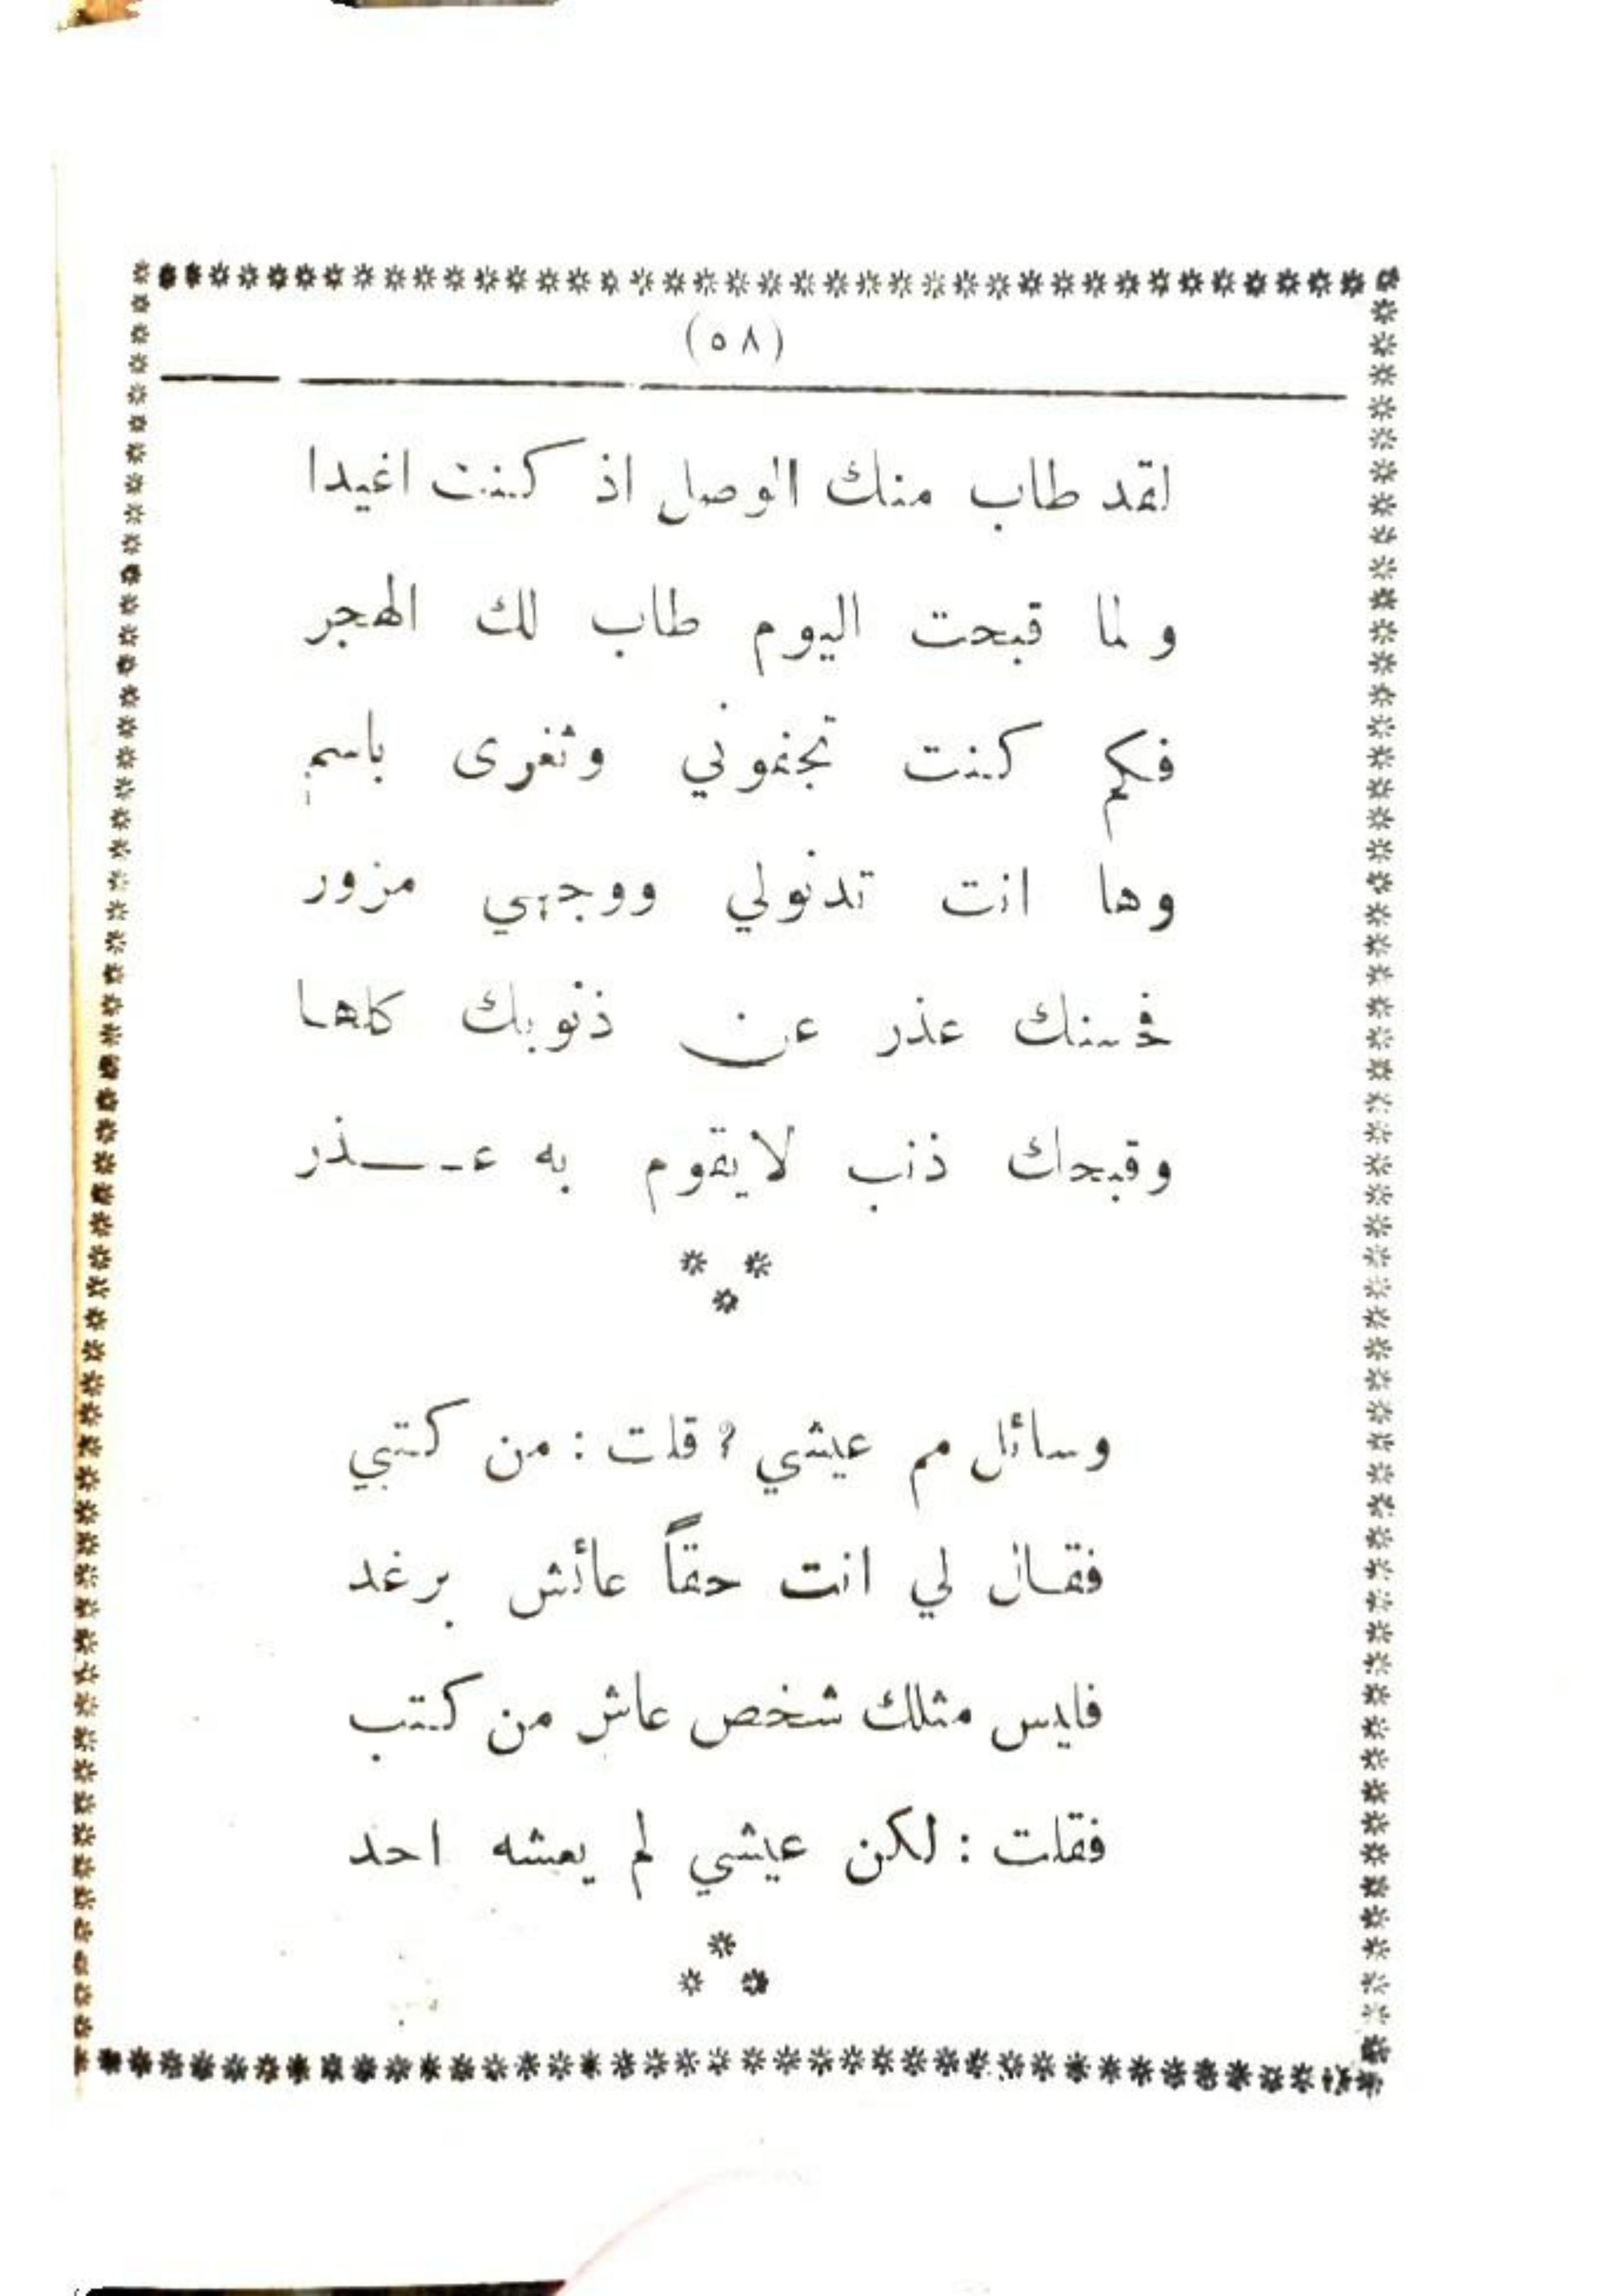 (٥٨)
لقد طاب منك الوصل اذ كنت اغيدا
و لما قبحت اليوم طاب لك الهجر
فكم كنت تجفوني وثغرى باسم
وها انت تدنولي ووجهي مزور
فحسنك عذر عن ذنوبك كلها
وقبحك ذنب لايقوم به عـــذر
وسائل مم عيشي ? قلت : من كتبي
فقال لي انت حقاً عائش برغد
فليس مثلك شخص عاش من كتب
فقلت : لكن عيشي لم يعشه احد